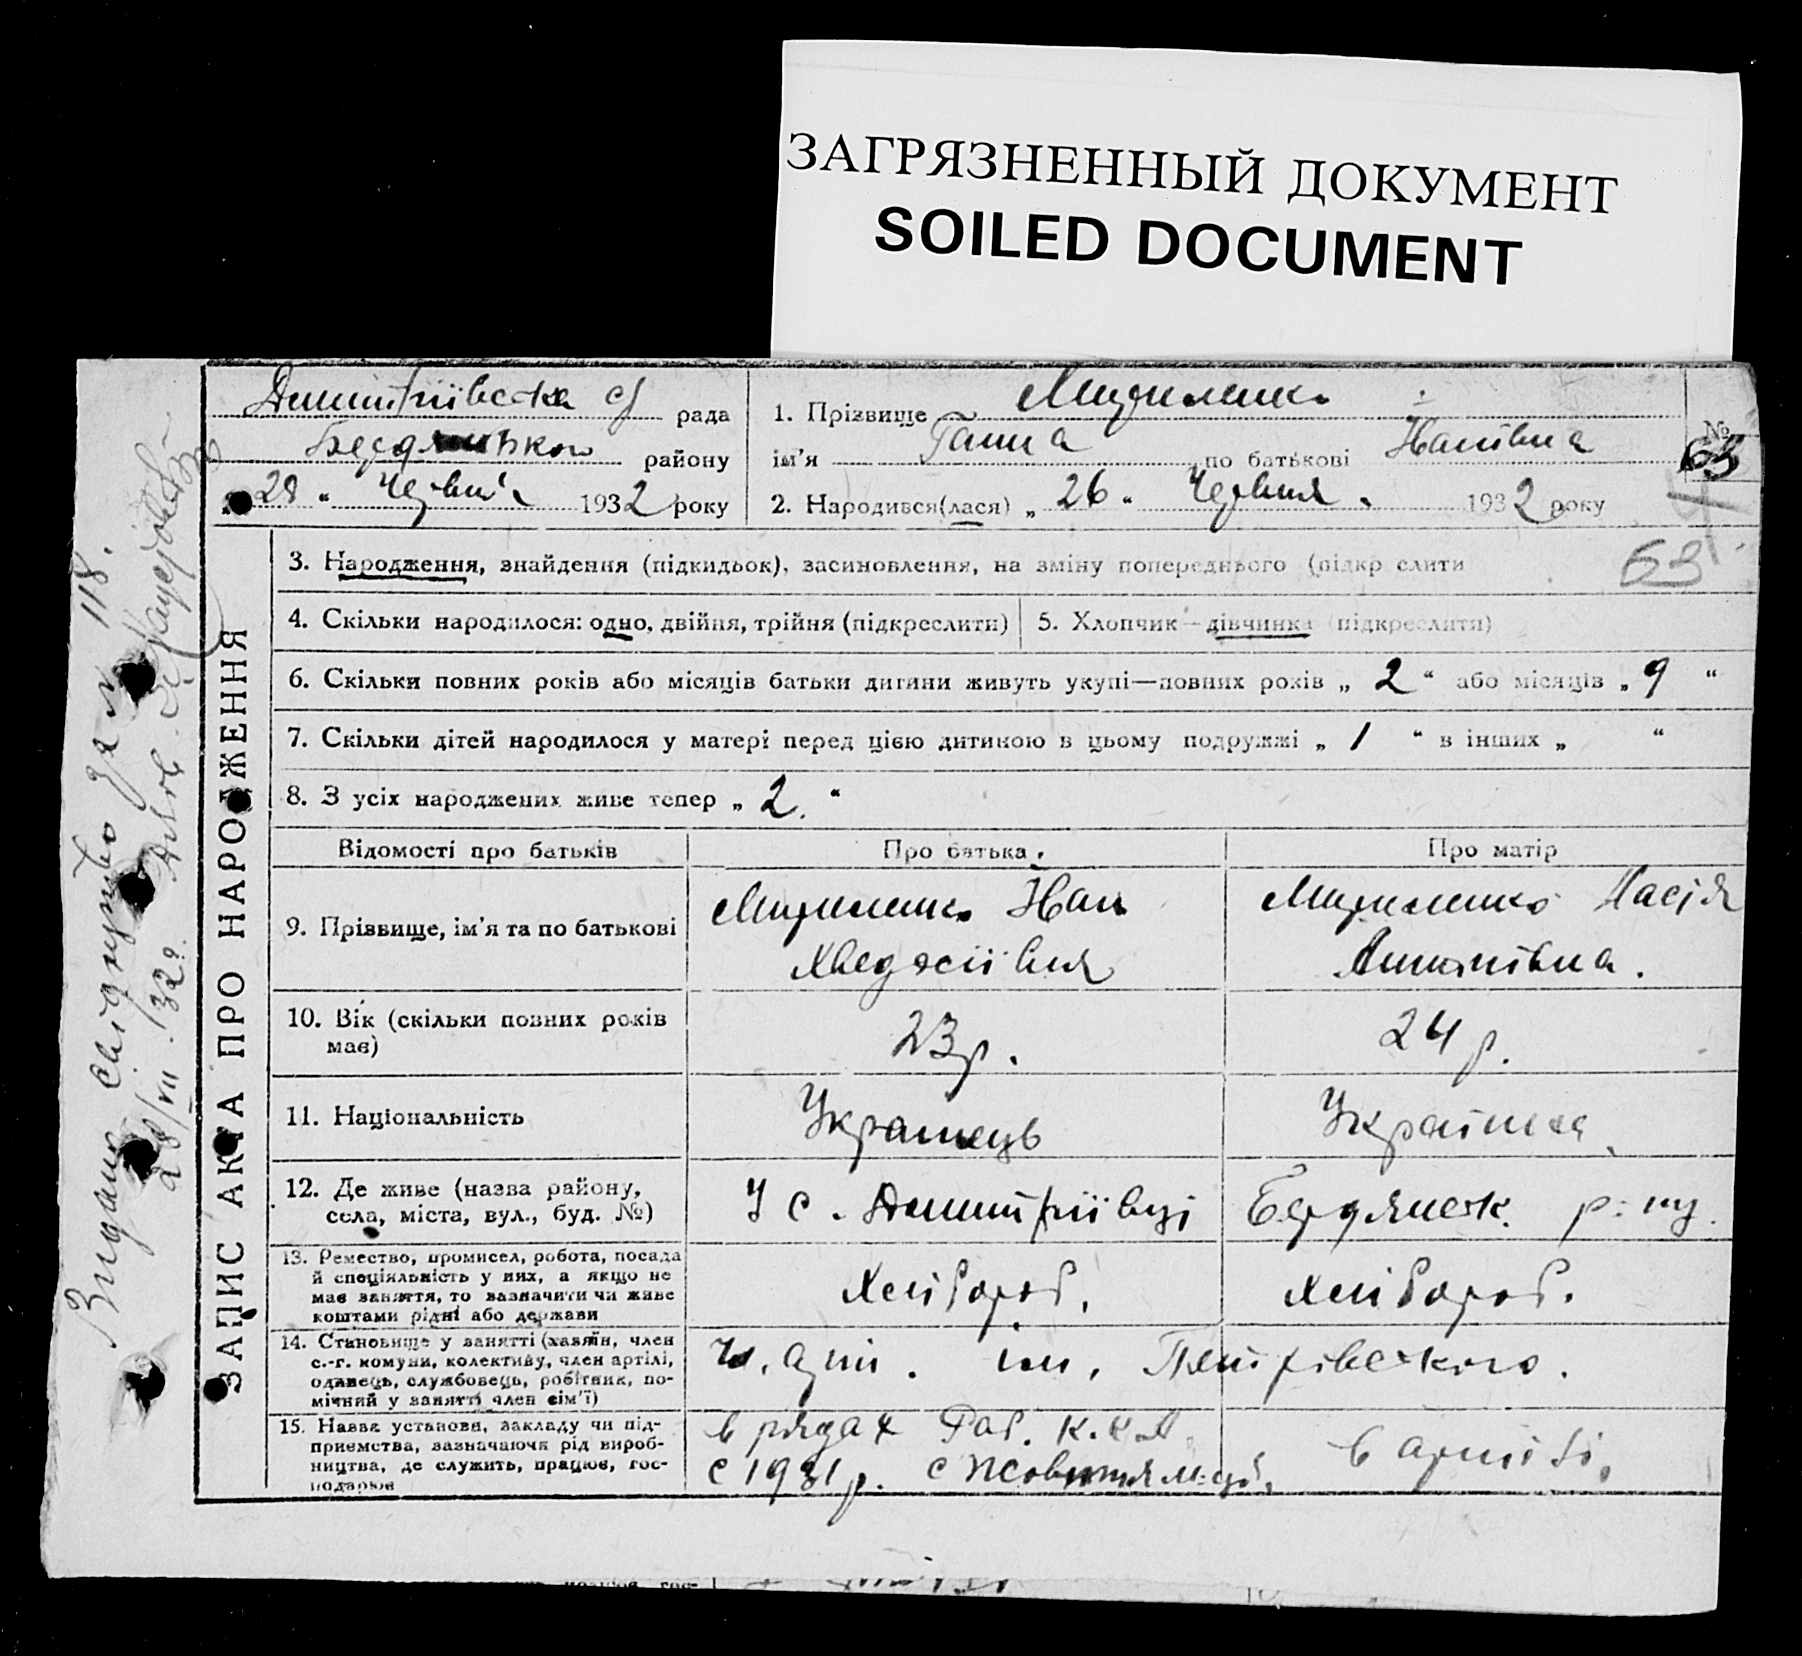 ЗАГРЯЗНЕННЫЙ ДОКУМЕНТ
SOILED DOCUMENT
Дмитріівська с/ рада
Бердянського району
„28“ Червня 1932 року
1. Прізвище
ім'я Ганна по батькові Іванівна
2. Народився(лася) „26“ Червня 1932 року
№ 63
63
ЗАПИС АКТА ПРО НАРОДЖЕННЯ
3. Народження, знайдення (підкидьок), засиновлення, на зміну попереднього (підкр слити
4. Скільки народилося: одно, двійня, трійня (підкреслити)
5. Хлопчик—дівчинка (підкреслити)
6. Скільки повних років або місяців батьки дитини живуть укупі—повних років „2“ або місяців „9“
7. Скільки дітей народилося у матері перед цією дитиною в цьому подружжі „1“ в інших „ “
8. З усіх народжених живе тепер „2.“
Відомості про батьків
Про батька
Про матір
9. Прізвище, ім'я та по батькові
Іван
10. Вік (скільки повних років
має)
23 р.
24 р.
11. Національність
Українець
Українка
12. Де живе (назва району,
села, міста, вул., буд. №)
У с. Дмитріівці
Бердянськ. р-ну.
13. Ремество, промисел, робота, посада
й спеціяльність у них, а якщо не
має заняття, то зазначити чи живе
коштами рідні або держави
Хлібороб.
Хлібороб.
14. Становище у занятті (хазяїн, член
с.-г. комуни, колективу, член артілі,
одинець, службовець, робітник, по-
мічний у занятті член сім'ї)
Чл. арт. ім. Петрівського.
15. Назва установи, закладу чи під-
приємства, зазначаючи рід вироб-
ництва, де служить, працює, гос-
подарює
в рядах Роб. К. К. А
с 1931 р. с Жовтня м-ця.
в артілі.
Видано свідоцтво за № 118.
28/VII. 32р.